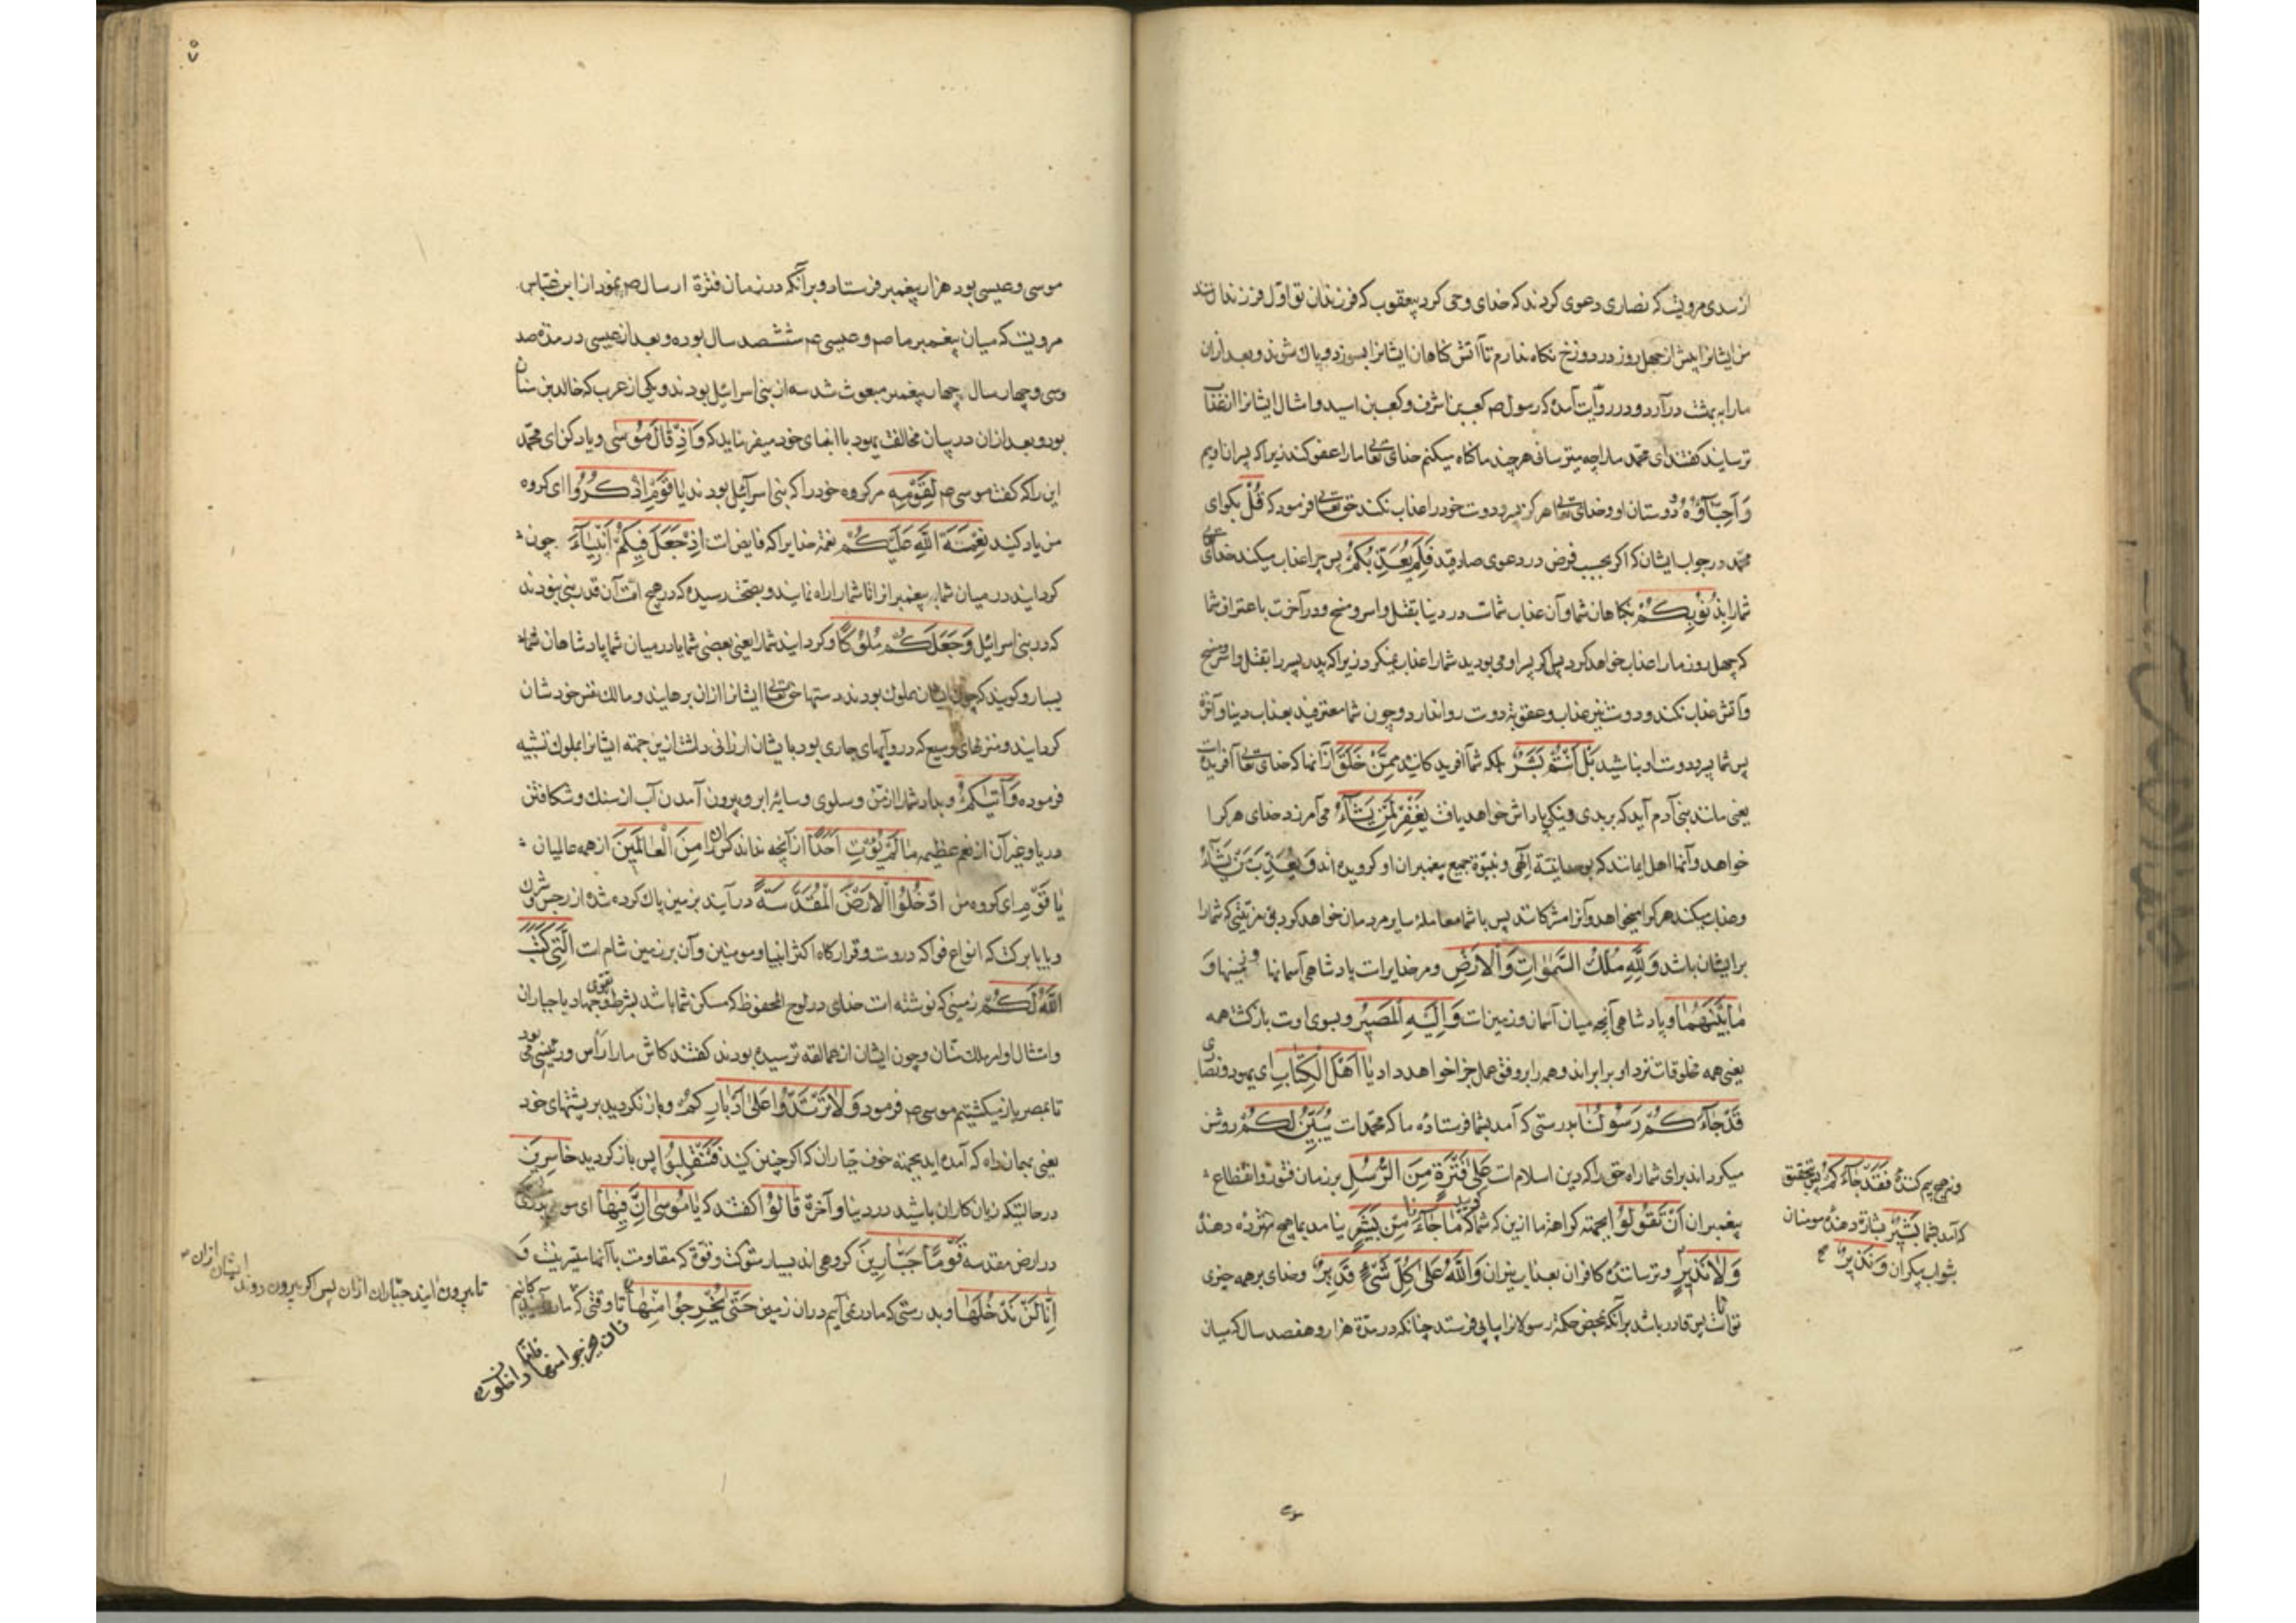 از سدی مرویست که نصاری دعوی کردند که خدای وحی کرد بیعقوب که فرزندان تو اول فرزندان
من ایشانرا بیش از چهل روز در دوزخ نگاه ندارم تا آتش کاهان ایشانرا بسوزد و پاک شوند و بعد از ان
مارا ببهشت درآرد و در روایت آمده که رسول صم کعب بن اشرف و کعب بن اسید و امثال ایشانرا از
ترسانید کفتند ای محمد مارا چه میترسانی هر چند ما کاه میکنیم خدای تعالی مارا عفو کند زیرا که پسران اوییم
وَأَحِبَّاؤُهُ دوستان او و خدای تعالی هرکز پسر و دوست خود را عذاب نکند حق تعالی فرمود که قُلْ بکوای
محمد در جواب ایشان که اکر بحسب فرض در دعوی صادقید فَلِمَ يُعَذِّبُكُمْ پس چرا عذاب میکند خدای تعالی
شمارا بِذُنُوبِكُمْ بکناهان شما و آن عذاب شماست در دنیا بقتل و اسر و مسخ و در آخرت باعتراف شما
که چهل روز مارا عذاب خواهد کرد پس اکر پسر او می بودید شمارا عذاب نمیکرد زیرا که پدر پسر را بقتل و اسر و مسخ
و آتش عذاب نکند و دوست نیز عذاب و عقوبة دوست روا ندارد و چون شما معترفید بعذاب دنیا و آخرة
پس شما پسر و دوست او نباشید بَلْ أَنْتُمْ بَشَرٌ بلکه شما آفریدکانید مِمَّنْ خَلَقَ از آنها که خدای تعالی آفریده است
یعنی مانند بنی آدم آید که بر بدی و نیکی پاداش خواهد یافت يَغْفِرُ لِمَنْ يَشَاءُ می آمرزد خدای هر کرا
خواهد و آنها اهل ایمانند که بوحدانیة الهی و نبوة جمیع پیغمبران او کرویده اند وَيُعَذِّبُ مَنْ يَشَاءُ
و عذاب میکند هر کرا میخواهد و آنرا مشرکانند پس با شما معامله سایر مردمان خواهد کرد و فی مزیتی که شمارا
بر ایشان باشد وَلِلَّهِ مُلْكُ السَّمٰوَاتِ وَالْأَرْضِ و مر خدایراست پادشاهی آسمانها و زمینها وَ
مَا بَيْنَهُمَا و پادشاهی آنچه میان آسمان و زمین است وَإِلَيْهِ الْمَصِيرُ و بسوی اوست بازکشت همه
یعنی همه مخلوقات نزد او برابراند و همه را بر وفق عمل جزا خواهد داد يَا أَهْلَ الْكِتَابِ ای یهود و نصاری
قَدْ جَاءَكُمْ رَسُولُنَا بدرستی که آمد بشما فرستاده ما که محمدست يُبَيِّنُ لَكُمْ روشن
میکرداند برای شما راه حق را که دین اسلام است عَلَىٰ فَتْرَةٍ مِنَ الرُّسُلِ بر زمان فتور و انقطاع
پیغمبران أَنْ تَقُولُوا بجهته کراهة ما ازین که شما کویید مَا جَاءَنَا مِنْ بَشِيرٍ نیامد بما هیچ مژده دهنده
وَلَا نَذِيرٍ و ترسانندهٔ کافران بعذاب نیران وَاللَّهُ عَلَىٰ كُلِّ شَيْءٍ قَدِيرٌ و خدای بر همه چیزی
تواناست پس قادر باشد بر آنکه بمحض حکمة رسولانرا پیاپی فرستد چنانکه در مدة هزار و هفصد سال که میان
و نه هیچ بیم کنندهٔ فَقَدْ جَاءَكُمْ پس بتحقیق
که آمد بشما بَشِيرٌ بشارة دهندهٔ مومنان
بثواب بیکران وَنَذِيرٌ صح
۵۷
موسی و عیسی بود هزار پیغمبر فرستاد و بر آنکه در زمان فترة ارسال صم نمود از ابن عباس
مرویست که میان پیغمبر ما صم و عیسی عم ششصد سال بوده و بعد از عیسی در مدة صد
و سی و چهار سال چهار پیغمبر مبعوث شد سه از بنی اسرائیل بودند و یکی از عرب که خالد بن سنان
بود و بعد از ان در بیان مخالفت یهود با انبیای خود میفرماید که وَإِذْ قَالَ مُوسَىٰ و یاد کن ای محمد
این را که کفت موسی عم لِقَوْمِهِ مر کروه خود را که بنی اسرآئیل بودند يَا قَوْمِ اذْكُرُوا ای کروه
من یاد کنید نِعْمَةَ اللَّهِ عَلَيْكُمْ نعمة خدایرا که فایض است إِذْ جَعَلَ فِيكُمْ أَنْبِيَاءَ چون
کردانید در میان شما پیغمبرانرا تا شمارا راه نمایند و بصحت رسیده که در هیچ امت آن قدر نبی نبودند
که در بنی اسرائیل وَجَعَلَكُمْ مُلُوكًا و کردانید شمارا یعنی بعضی شما یا در میان شما پادشاهان شما
بسیار و کویند که چون ایشان مملوک بودند دستها حق تعالی ایشانرا ازان برهانید و مالک نفس خودشان
کردانید و منزلهای وسیع که درو آبهای جاری بود بایشان ارزانی داشت ازین جهته ایشانرا بملوک تشبیه
فرموده وَآتَاكُمْ و بداد شمارا از من و سلوی و سایهٔ ابر و بیرون آمدن آب از سنک و شکافتن
دریا و غیر آن از نعم عظیمه مَا لَمْ يُؤْتِ أَحَدًا از آنچه نداد کس را مِنَ الْعَالَمِينَ از همه عالمیان
يَا قَوْمِ ای کروه من ادْخُلُوا الْأَرْضَ الْمُقَدَّسَةَ در آیید بزمین پاک کرده شده از رجس شرک و
و یا با برکت که انواع فواکه دروست و قرارکاه اکثر انبیا و مومنین و آن بر زمین شام است الَّتِي كَتَبَ
اللَّهُ لَكُمْ زمینی که نوشته است خدای در لوح المحفوظ که مسکن شما باشد بشرط تقوی و جهاد با جباران
و امتثال اوامر ملک منان و چون ایشان از عمالقه ترسیده بودند کفتند کاش مارا رأس و رئیسی می بود
تا بمصر باز میکشتیم موسی عم فرمود وَلَا تَرْتَدُّوا عَلَىٰ أَدْبَارِكُمْ و باز نکردید بر پشتهای خود
یعنی بهمان راه که آمده اید بجهته خوف جباران که اکر چنین کنید فَتَنْقَلِبُوا پس باز کردید خَاسِرِينَ
در حالتیکه زیان کاران باشید در دنیا و آخرة قَالُوا کفتند که يَا مُوسَىٰ إِنَّ فِيهَا ای موسی بدرستی که
در ارض مقدسه قَوْمًا جَبَّارِينَ کروهی اند بسیار شوکت و قوة که مقاومت با آنها میسر نیست وَ
إِنَّا لَنْ نَدْخُلَهَا و بدرستی که ما در نمی آییم دران زمین حَتَّىٰ يَخْرُجُوا مِنْهَا تا وقتی که
تا بیرون آیند جباران ازان پس اکر بیرون روند ایشان ازان
فان یخرجوا منها فانا داخلون